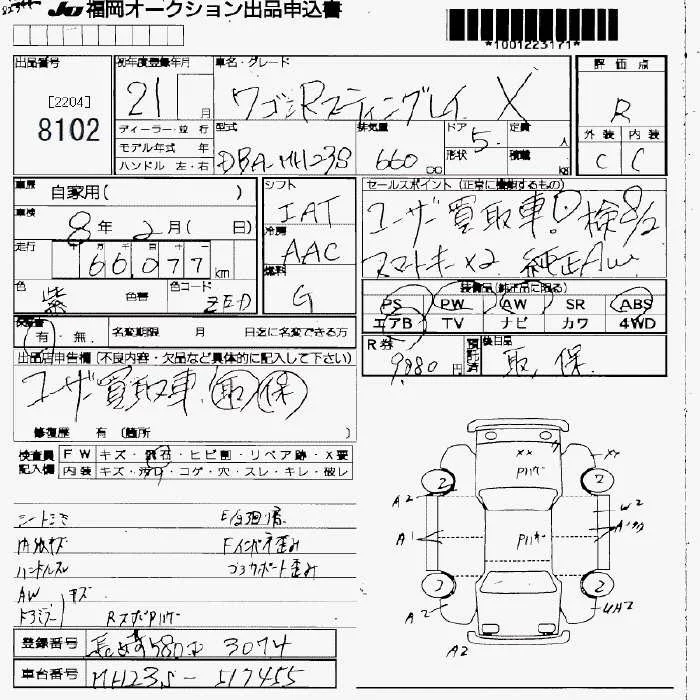 JU 福岡オークション出品申込書
*1001223171*
出品番号
[2204]
8102
初年度登録年月
21 月
車名・グレード
ワゴンRスティングレイ X
評価点
R
外装 内装
C C
ディーラー・並行
モデル年式 年
ハンドル 左・右
型式
DBA-MH23S
排気量
660 cc
ドア 5
形状
定員 人
積載 kg
車歴
自家用( )
車検
8年 2月( 日)
走行
66,077 km
色
紫
色替
色コード
ZED
シフト
IAT
冷房
AAC
燃料
G
セールスポイント(正常に機能するもの)
ユーザー買取車! 検8/2
スマートキーx2 純正AW
装備品(純正品に限る)
PS PW AW SR ABS
エアB TV ナビ カワ 4WD
保証書
有・無
名変期限 月 日迄に名変できる方
R券
9,080円
預託済
後日品
取 保
出品店申告欄(不良内容・欠品など具体的に記入して下さい)
ユーザー買取車 取 保
修復歴 有 〔箇所 〕
検査員記入欄
FW キズ・飛石・ヒビ割・リペア跡・X要
内装 キズ・汚れ・コゲ・穴・スレ・キレ・破レ
シートシミ
内張キズ
ハンドルスレ
AW
ドアミラー
キズ
Fインパネ歪み
コアサポート歪み
XX
XX
2
2
2
2
A2
A1
W2
A2
UA2
A2
登録番号
長崎580 3074
車台番号
MH23S-517455